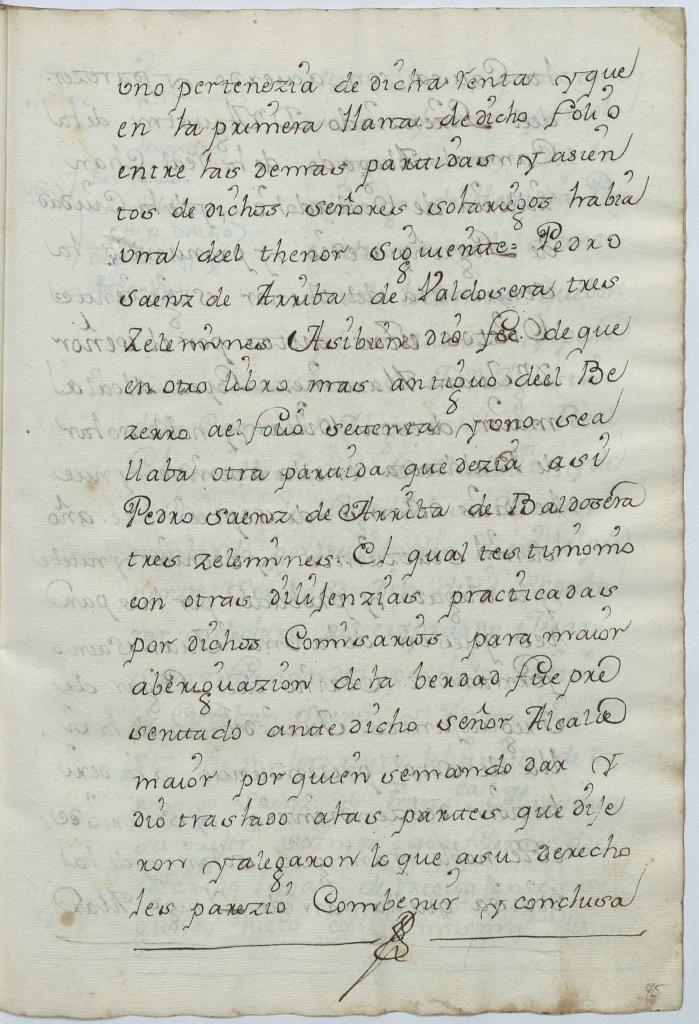 uno pertenezia de dicha renta y que
en la primera llana de dicho folio
entre las demas partidas y asien
tos de dichos señores solariegos habia
una deel thenor siguientte= Pedro
Saenz de Arriba de Valdosera tres
Zelemines Asibien dio fee. de que
en otro libro mas antiguo deel Be
zerro ael folio settenta y uno sea
llaba otra partida que dezia asi
Pedro Saenz de Arriba de Baldosera
tres zelemines. El qual testimonio
con otras dilijenzias practicadas
por dichos Comisarios para maior
aberiguazion de la berdad fue pre
senttado antte dicho señor Alcalde
maior por quien semando dar y
dio traslado alas parttes que dije
ron y alegaron lo que asu derecho
les parezio Combenir y conclusa
95